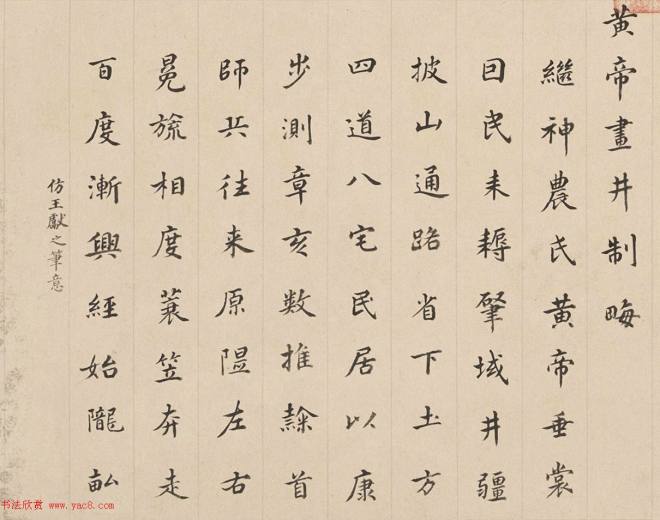 黄帝畫井制畮
繼神農氏黄帝垂裳
囙民耒耨肇域井疆
披山通路省下土方
四道八宅民居以康
步測章亥數推隸首
師兵往来原隰左右
冕旒相度蓑笠奔走
百度漸興經始隴畝
仿王獻之筆意
书法欣赏 www.yac8.com